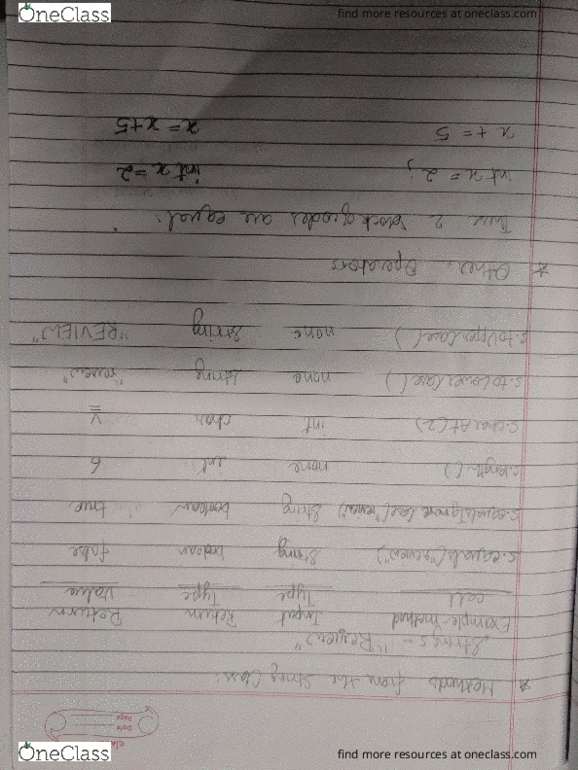 OneClass
find more resources at oneclass.com
* Methods from the String Class:
String s = "Review"
Example method call Input Type Return Type Return Value
s.equals("review") String boolean false
s.equalsIgnoreCase("review") String boolean true
s.length() none int 6
s.charAt(2) int char v
s.toLowerCase() none String "review"
s.toUpperCase() none String "REVIEW"
* Other Operators
These 2 block of codes are equal:
int x = 2; int x = 2
x += 5 x = x+5
OneClass
find more resources at oneclass.com